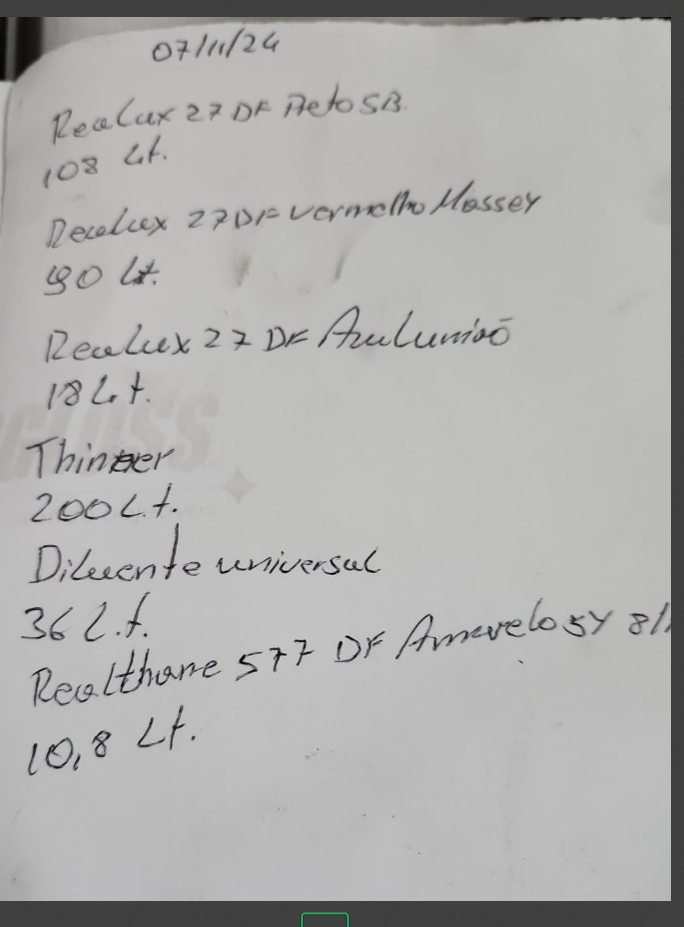 07/11/24
Realux 27 DF Preto SB.
108 Lt.
Realux 27 DF vermelho Massey
90 Lt.
Realux 27 DF Azul união
18 Lt.
Thinner
200 Lt.
Diluente universal
36 Lt.
Realthane 577 DF Amarelo 5Y 8/
10,8 Lt.